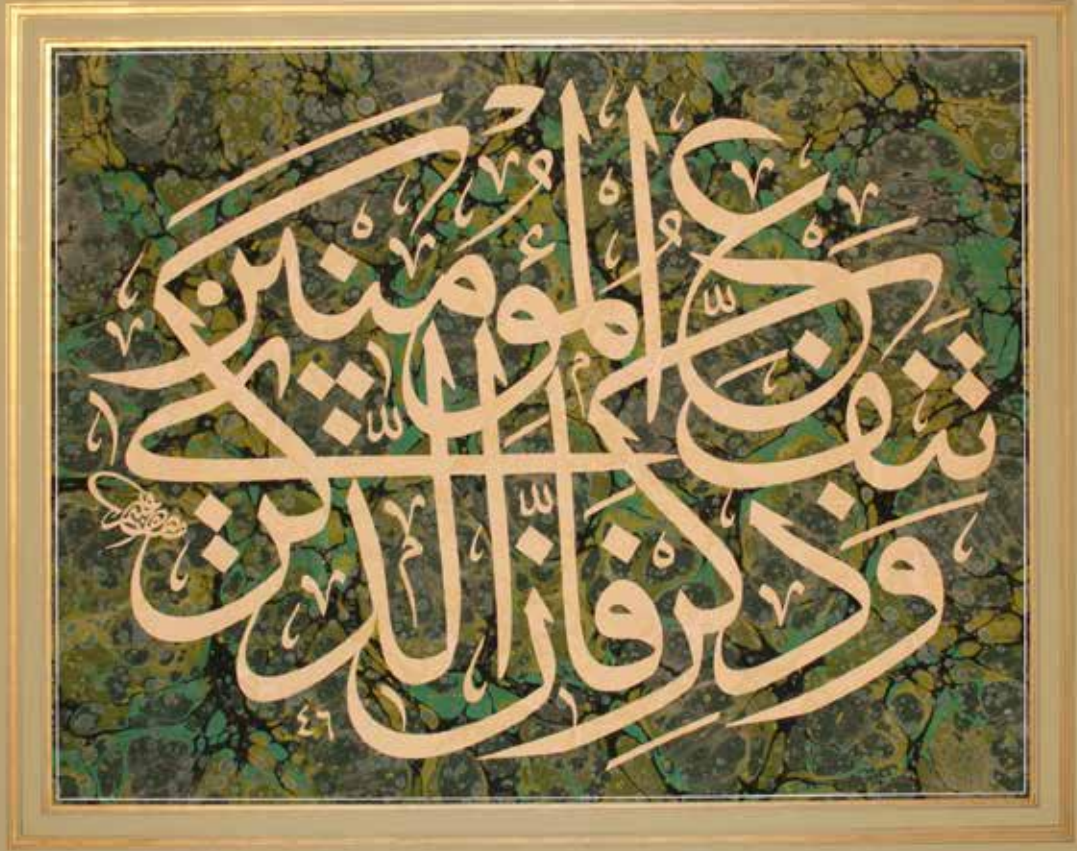 وَذَكِّرْ فَاِنَّ الذِّكْرٰى
تَنْفَعُ الْمُؤْمِنِينَ
٤٦